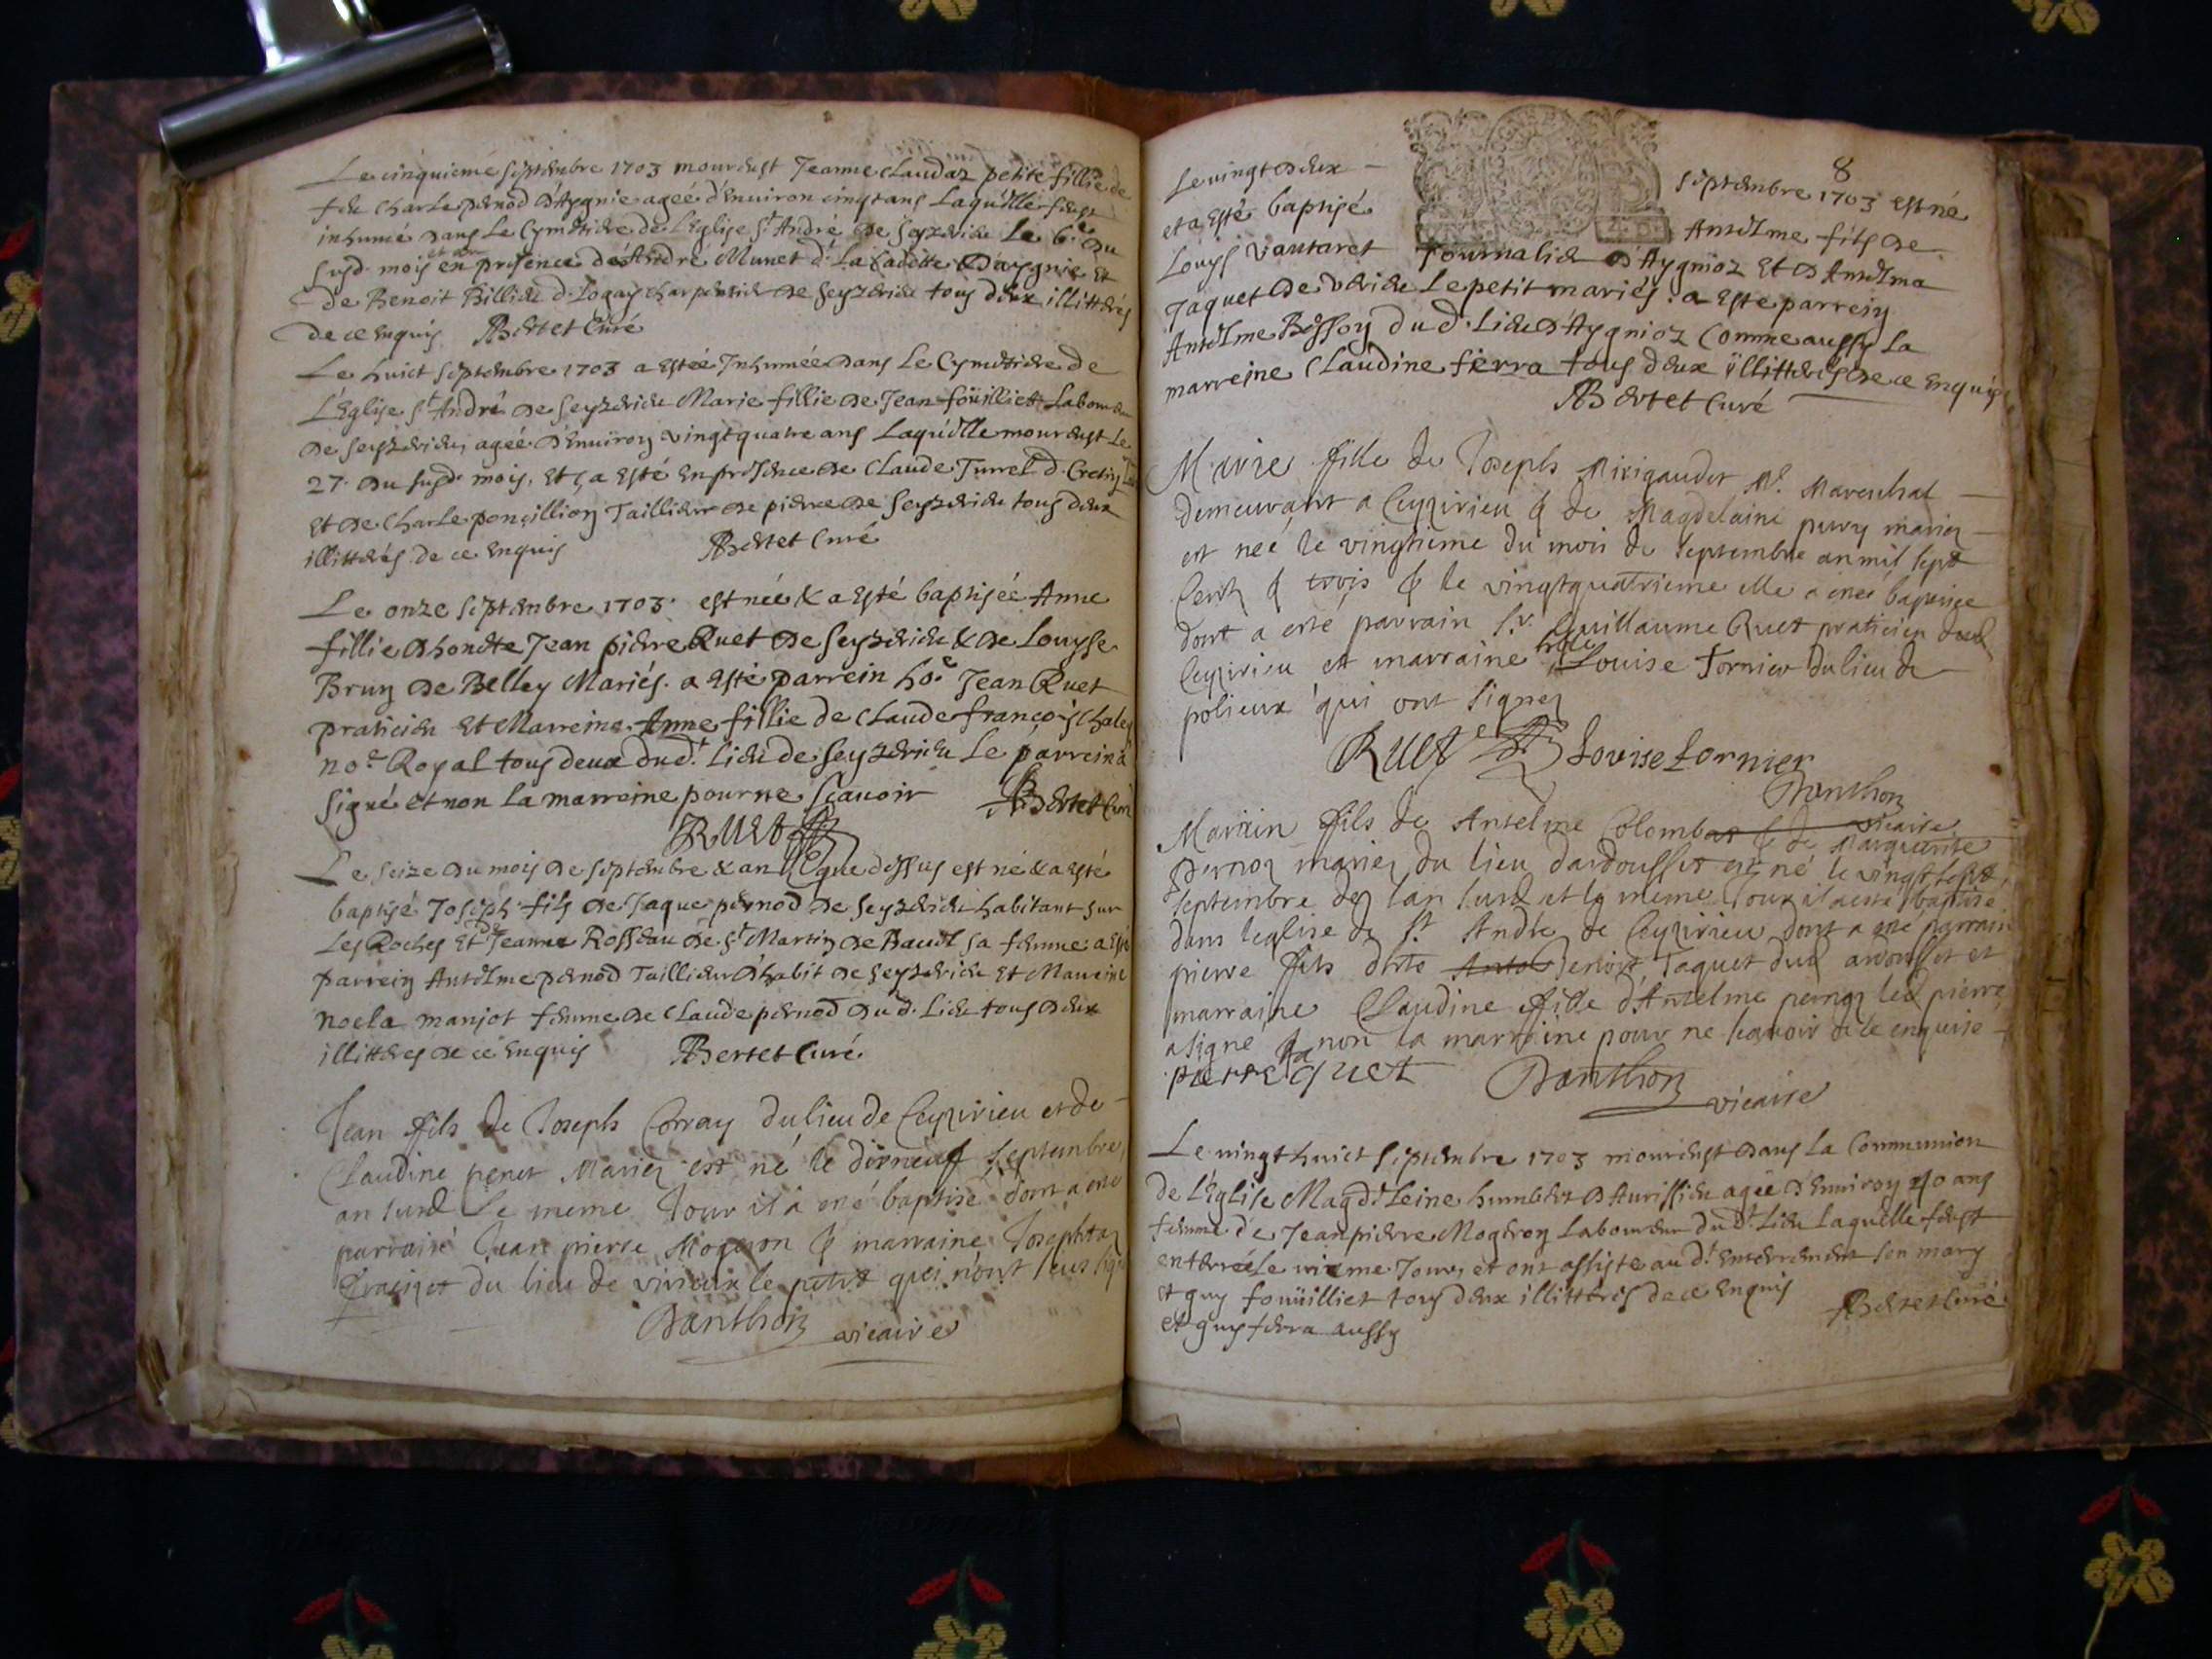 Le cinquieme septembre 1703 mourust Jeanne Claudaz petite fillie de
feu Charle pernod d'Aygnie ageé d'Environ cinq ans Laquelle fust
inhumé dans Le Cymetiere de L'Eglise St André de Seyzerieu Le 6e du
susd. mois en presence de André Munet d. La Cadette d'aygnie Et
de Benoit Billieu d. Logay charpentier de Seyzerieu tous deux illitterés
de ce Enquis Bertet Curé
Le huict Septembre 1703 a Estée Inhumée dans Le Cymetiere de
L'Eglise St André de Seyzerieu Marie fillie de Jean foüilliet Laboureur
de Seyzerieu, ageé d'Enuiron vingtquatre ans Laquelle mourust Le
27. du susd. mois, Et ça Esté En presence de Claude Turrel d. Cretin
Et de Charle ponçillion Taillieur de pierre de Seyzerieu tous deux
illitterés de ce Enquis Bertet Curé
Le onze Septembre 1703. est née & a Esté baptisée Anne
fillie d'honete Jean pierre Ruet de Seyzerieu & de Louyse
Brun de Belley Mariés. a Esté parrein ho.e Jean Ruet
praticien Et Marreine Anne fillie de Claude françois Chaley
no.e Royal tous deux dud.t Lieu de Seyzerieu Le parrein a
signé et non la marreine pour ne sçauoir Bertet Curé
Ruet
Le seize du mois de septembre & an que dessus est né & a esté
baptisé Joseph fils de Jaque pernod de Seyzerieu habitant sur
Les Roches Et de Jeanne Rosseau de St Martin de Bauel sa femme: a Esté
parrein Antelme pernod Taillieur d'habit de Seyzerieu Et Marreine
noela manjot femme de Claude pernod du d. Lieu tous deux
illitteres de ce Enquis Bertet Curé.
Jean fils de Joseph Corray du lieu de Ceyzirieu et de
Claudine penet Mariez est né le dixneuf Septembre
an susd. Le meme Jour il a esté baptisé dont a esté
parrain Jean pierre Mogeron & marraine Josephtaz
du lieu de virieux le petit qui n'ont sceus sign
Danthon vicaire
8
Le vingt deux septembre 1703 est né
et a Esté baptisé Antelme fils de
Louys vautaret Journalier d'Aygnioz Et d'Antelma
Jaquet de virieu Le petit mariés. a Esté parrein
Antelme Besson du d. Lieu d'Aygnioz Comme aussy La
marreine Claudine ferra tous deux illitterés de ce Enquis
Bertet Curé
Marie fille de Joseph Mirigaudet M. Mareschal
demeurant a Ceyzirieu & de Magdelaine mariez
est neé le vingtieme du mois de septembre an mil sept
Centz & trois & le vingtquatrieme elle a esteé baptisée
dont a esté parrain Sr. Guillaume Ruet praticien dud
Ceyzirieu et marraine Louise Fornier du lieu de
polieux qui ont signez
Ruet Lovise Fornier
Danthon
vicaire
Marin fils de Antelme Colombat & de Marguerite
Pernoz mariez du lieu dardousset est né le vingt sept
septembre de lan susd et le meme Jour il a esté baptisé
dans leglise de St André de Ceyzirieu dont a esté parrain
pierre fils d'hte Benoist Jaquet dud ardousset et
marraine Claudine fille d'Antelme led pierre
a signe & non la marraine pour ne scavoir de ce enquise
pierre Jaquet Danthon
vicaire
Le vingt huict Septembre 1703 mourust dans la Communion
de L'Eglise Magd.Leine humbert d'Aurissieu ageé d'Enuiron 40 ans
femme de Jean pierre Mogeron Laboureur dud.t Lieu Laquelle fust
enterrée Le Jour, et ont assisté au d.t Enterrement son mary
et guy foüilliet tous deux illitterés de ce Enquis
et guy ferra aussy Bertet Curé